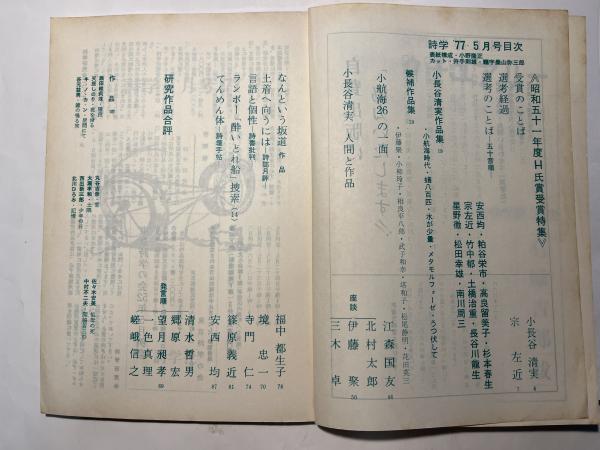 詩学 '77・5月号目次
表紙構成・小野隆正
《昭和五十一年度H氏賞受賞特集》
受賞のことば 小長谷清実 6
選考経過 宗左近 7
選考のことば・五十音順
安西均・粕谷栄市・高良留美子・杉本春生
宗左近・竹中郁・土橋治重・長谷川龍生
星野徹・松田幸雄・南川周三
小長谷清実作品集
・小航海時代・蠅八百匹・水が少量・メタモルフォーゼ・うつ伏して
候補作品集
・伊藤聚・小柳玲子・相良平八郎・武子和幸・塔和子・松尾静明・花田英三
小航海26の一面 江森国友
小長谷清実、人間と作品
座談
北村太郎
伊藤聚
三木卓
なんという坂道 作品 福中都生子 78
土着へ向うには―詩誌月評― 境忠一 70
言語と個性―詩書批判 寺門仁 74
ランボー「酔いどれ船」捜索(14) 篠原義近 81
てんめん体―詩壇手帖 安西均 87
研究作品合評
発言順
清水哲男
郷原宏
望月昶孝 89
一色真理
嵯峨信之
作品